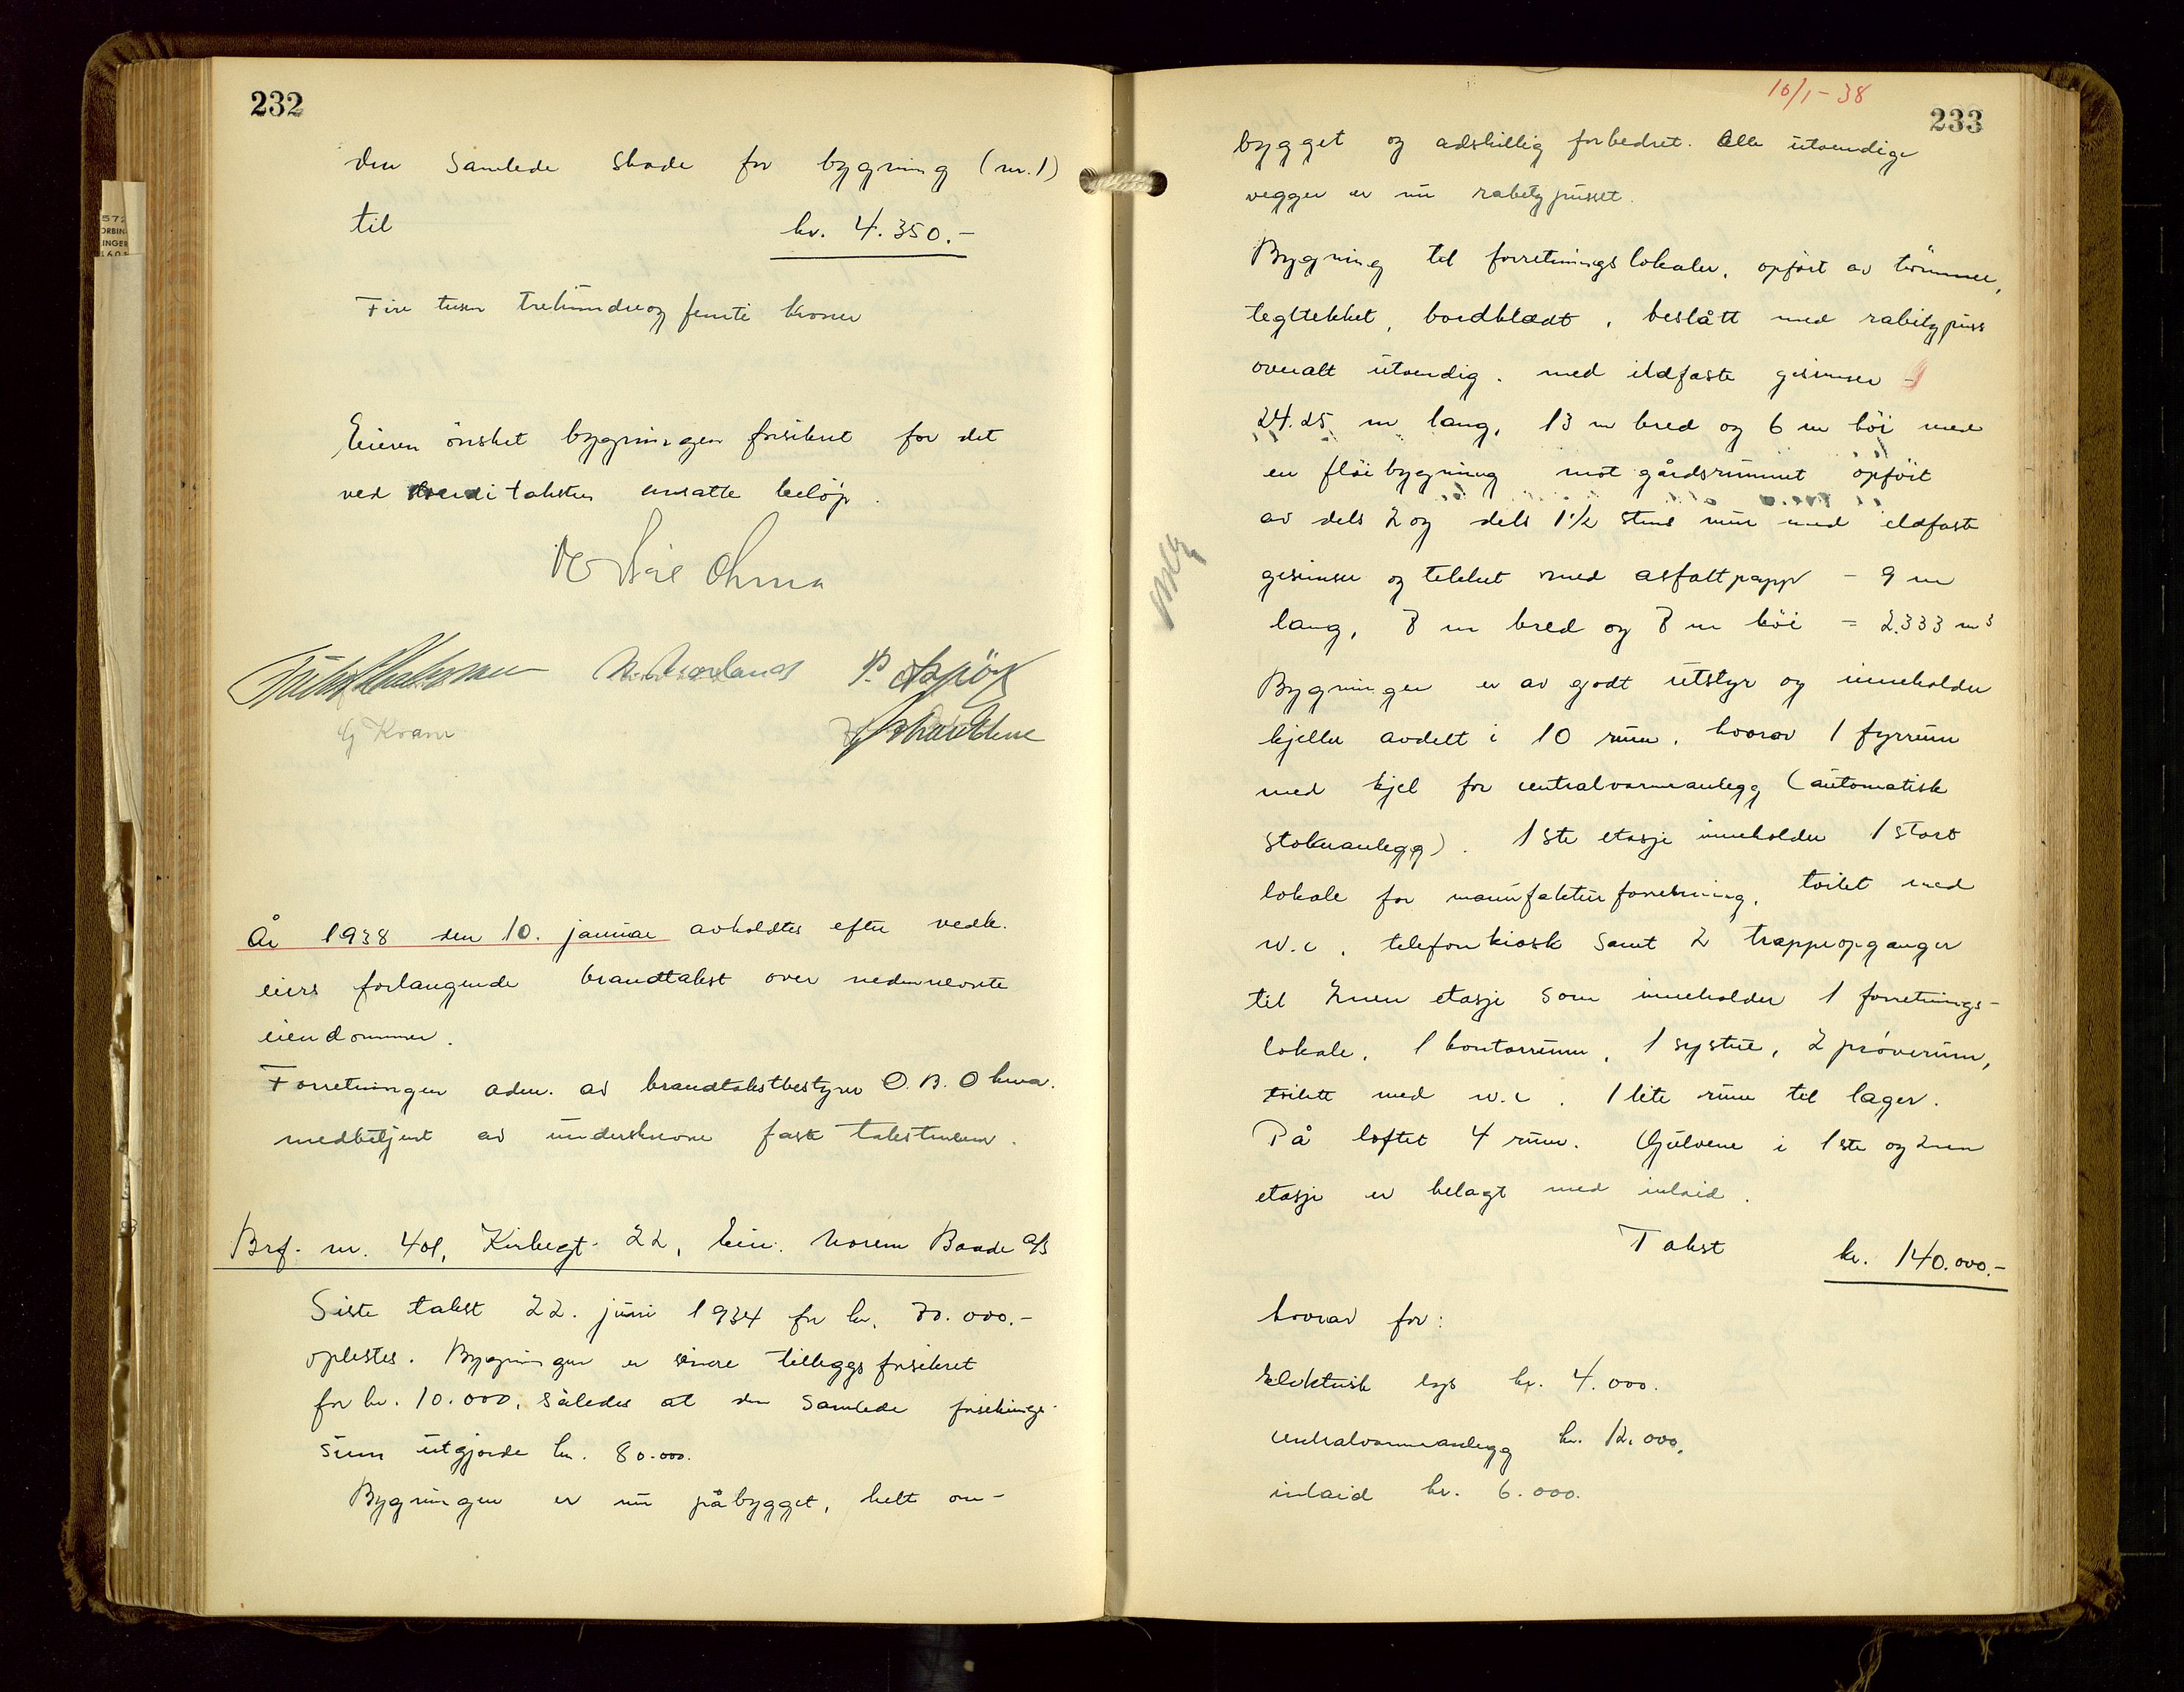 232
den samlede skade for bygning (nr. 1)
til kr. 4.350.-
Fire tusen trehundreogfemti kroner
Eieren ønsket bygningen forsikret for det
ved takster ansatte beløp.
Ohma
G Kvam
År 1938 den 10. januar avholdtes efter vedk.
eiers forlangende brandtakst over nedennevnte
eiendommer.
Forretningen adm. av brandtakstbestyrer O. B. Ohma.
medbetjent av underskrevne faste takstmenn.
Brf. nr. 401, Kirkegt. 22, Eier: Norem Baade A/S
Siste takst 22. juni 1934 for kr. 70.000.-
oplestes. Bygningen er senere tilleggsforsikret
for kr. 10.000, således at den samlede forsikrings-
sum utgjorde kr. 80.000.
Bygningen er nu påbygget, helt om-
10/1-38
233
bygget og adskillig forbedret. Alle utvendige
vegger er nu rabitzpusset.
Bygning til forretningslokaler, opført av tømmer,
tegltekket, bordklædt, beslått med rabitzpuss
overalt utvendig. med ildfaste gesimser -
24.25 m lang, 13 m bred og 6 m høi med
en fløibygning mot gårdsrummet opført
av dels 2 og dels 1 1/2 stens mur med ildfaste
gesimser og tekket med asfaltpapp - 9 m
lang, 7 m bred og 7 m høi = 2.333 m³
Bygningen er av godt utstyr og inneholder
kjeller avdelt i 10 rum, hvorav 1 fyrrum
med kjel for centralvarmeanlegg (automatisk
stokeranlegg). 1ste etasje inneholder 1 stort
lokale for manufakturforretning, toilet med
w.c, telefonkiosk samt 2 trappeopganger
til 2nen etasje som inneholder 1 forretnings-
lokale, 1 kontorrum, 1 systue, 2 prøverum,
toilett med w.c. 1 lite rum til lager.
På loftet 4 rum. Gulvene i 1ste og 2nen
etasje er belagt med inlaid.
Takst kr. 140.000.-
hvorav for:
Elektrisk lys kr. 4.000.
centralvarmeanlegg kr. 12.000.
inlaid kr. 6.000.